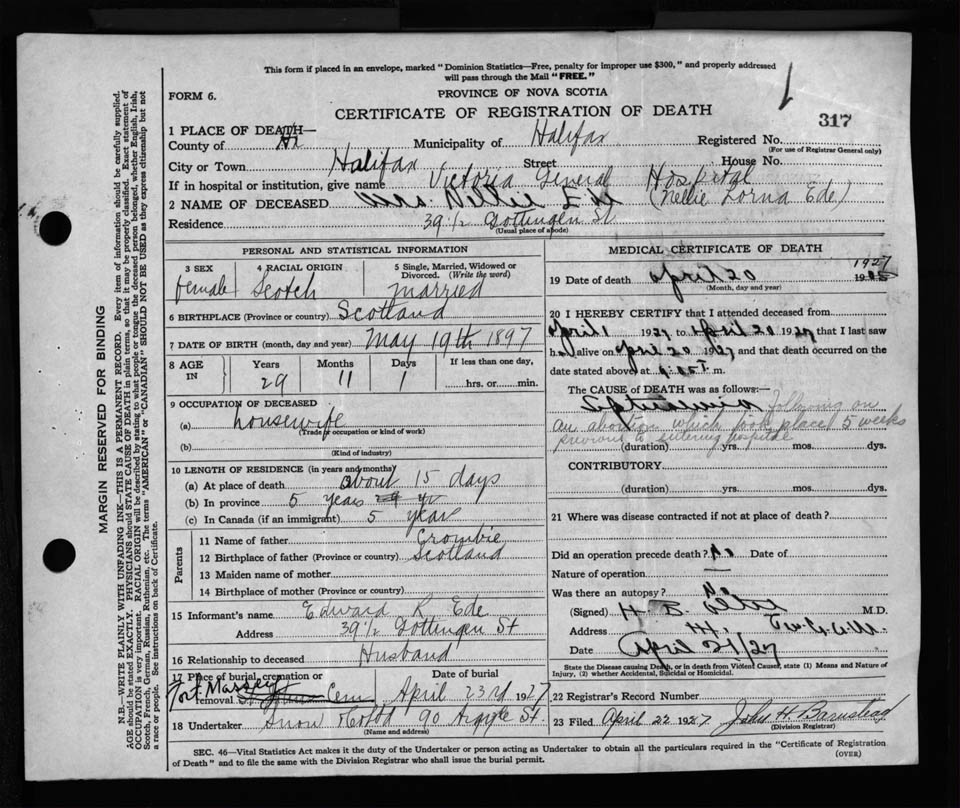 This form if placed in an envelope, marked "Dominion Statistics—Free, penalty for improper use $300," and properly addressed
will pass through the Mail "FREE."
FORM 6.
PROVINCE OF NOVA SCOTIA
CERTIFICATE OF REGISTRATION OF DEATH
317
1 PLACE OF DEATH—
County of Hx Municipality of Halifax Registered No.
(For use of Registrar General only)
City or Town Halifax Street House No.
If in hospital or institution, give name Victoria General Hospital
2 NAME OF DECEASED Mrs Nellie Ede (Nellie Lorna Ede)
Residence 39 1/2 Gottingen St
(Usual place of abode)
PERSONAL AND STATISTICAL INFORMATION
3 SEX 4 RACIAL ORIGIN 5 Single, Married, Widowed or
Divorced. (Write the word)
female Scotch married
6 BIRTHPLACE (Province or country) Scotland
7 DATE OF BIRTH (month, day and year) May 19th 1897
8 AGE IN Years Months Days If less than one day,
29 11 1 hrs. or min.
9 OCCUPATION OF DECEASED
(a) housewife
(Trade occupation or kind of work)
(b)
(Kind of industry)
10 LENGTH OF RESIDENCE (in years and months)
(a) At place of death about 15 days
(b) In province 5 years
(c) In Canada (if an immigrant) 5 year
Parents
11 Name of father Crombie
12 Birthplace of father (Province or country) Scotland
13 Maiden name of mother
14 Birthplace of mother (Province or country)
15 Informant's name Edward R Ede
Address 39 1/2 Gottingen St
16 Relationship to deceased Husband
17 Place of burial, cremation or removal Date of burial
Fort Massey Cem April 23rd 1927
18 Undertaker Snow & Co Ltd 90 Argyle St.
(Name and address)
MEDICAL CERTIFICATE OF DEATH
19 Date of death April 20 1927
(Month, day and year)
20 I HEREBY CERTIFY that I attended deceased from
April 1 1927 to April 20 1927 that I last saw
h alive on April 20 1927 and that death occurred on
date stated above at m.
The CAUSE of DEATH was as follows:
Septicemia following on
an abortion which took place 5 weeks
previous to entering hospital
(duration) yrs. mos. dys.
CONTRIBUTORY
(duration) yrs. mos. dys.
21 Where was disease contracted if not at place of death?
Did an operation precede death? No Date of
Nature of operation
Was there an autopsy? No
(Signed) M.D.
Address
Date April 21/27
State the Disease causing Death, or in death from Violent Causes, state (1) Means and Nature of
Injury, (2) whether Accidental, Suicidal or Homicidal.
22 Registrar's Record Number
23 Filed April 22 1927 John H Barnstead
(Division Registrar)
SEC. 46—Vital Statistics Act makes it the duty of the Undertaker or person acting as Undertaker to obtain all the particulars required in the "Certificate of Registration
of Death" and to file the same with the Division Registrar who shall issue the burial permit.
(OVER)
MARGIN RESERVED FOR BINDING
N.B.—WRITE PLAINLY WITH UNFADING INK—THIS IS A PERMANENT RECORD. Every item of information should be carefully supplied.
AGE should be stated EXACTLY. PHYSICIANS should STATE CAUSE OF DEATH in plain terms, so that it may be properly classified. Exact statement of
OCCUPATION is very important. RACIAL ORIGIN will be described by stating to what people or tongue the deceased person belonged, whether English, Irish,
Scotch, French, German, Russian, Ruthenian, etc. The terms "AMERICAN" or "CANADIAN" SHOULD NOT BE USED as they express citizenship but not
a race or people. See instructions on back of Certificate.